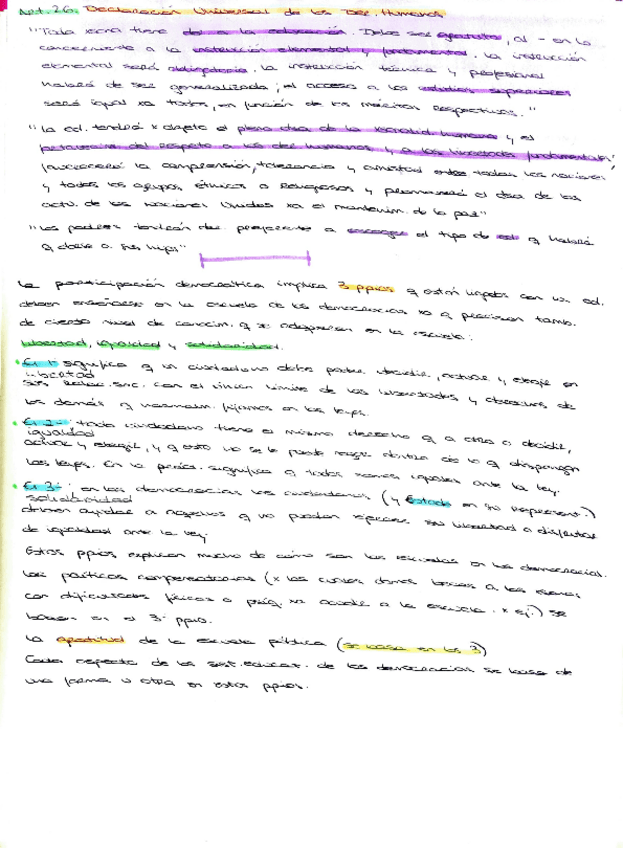 Art. 26. Declaración Universal de los Der. Humanos
"Toda xona tiene dro a la educación. Debe ser gratuita, al - en lo
concerniente a la instrucción elemental y fundamental. La instrucción
elemental será obligatoria. La instrucción técnica y profesional
habrá de ser generalizada; el acceso a los estudios superiores
será igual xa todos, en función de los méritos respectivos."
"La ed. tendrá x objeto el pleno dllo de la xonalidad humana y el
fortalecim. del respeto a los der. humanos y a las libertades fundamentales;
favorecerá la comprensión, tolerancia y amistad entre todas las naciones
y todos los grupos étnicos o religiosos y promoverá el dllo de las
activ. de las Naciones Unidas xa el mantenim. de la paz"
"Los padres tendrán der. preferente a escoger el tipo de ed. q habrá
q darse a sus hijos"
La participación democrática implica 3 ppios q están ligados con un. ed.
deben enseñarse en la escuela de las democracias xa q precisan tamb.
de cierto nivel de conocim. q se adquieren en la escuela:
libertad, igualdad y solidaridad.
El 1º significa q un ciudadano debe poder decidir, actuar y elegir en
libertad
sus relac. soc. con el único límite de las libertades y derechos de
los demás q normalm. fijamos en las leyes.
El 2º: todo ciudadano tiene el mismo derecho q a otro a decidir,
igualdad
actuar y elegir, y q esto no se le puede negar distinto de lo q dispongan
las leyes. En la práct. significa q todos somos iguales ante la ley.
El 3º: en las democracias los ciudadanos (y Estado en su represent.)
solidaridad
deben ayudar a aquellos q no puedan ejercer su libertad o disfrutar
de igualdad ante la ley.
Estos ppios explican mucho de cómo son las escuelas en las democracias.
Las políticas compensatorias (x las cuales damos becas a los alumnos
con dificultades físicas o psíq. xa acudir a la escuela. x ej.) se
basan en el 3º ppio.
La gratuidad de la escuela pública (se basa en los 3)
Cada aspecto de los sist. educat. de las democracias se basa de
una forma u otra en estos ppios.